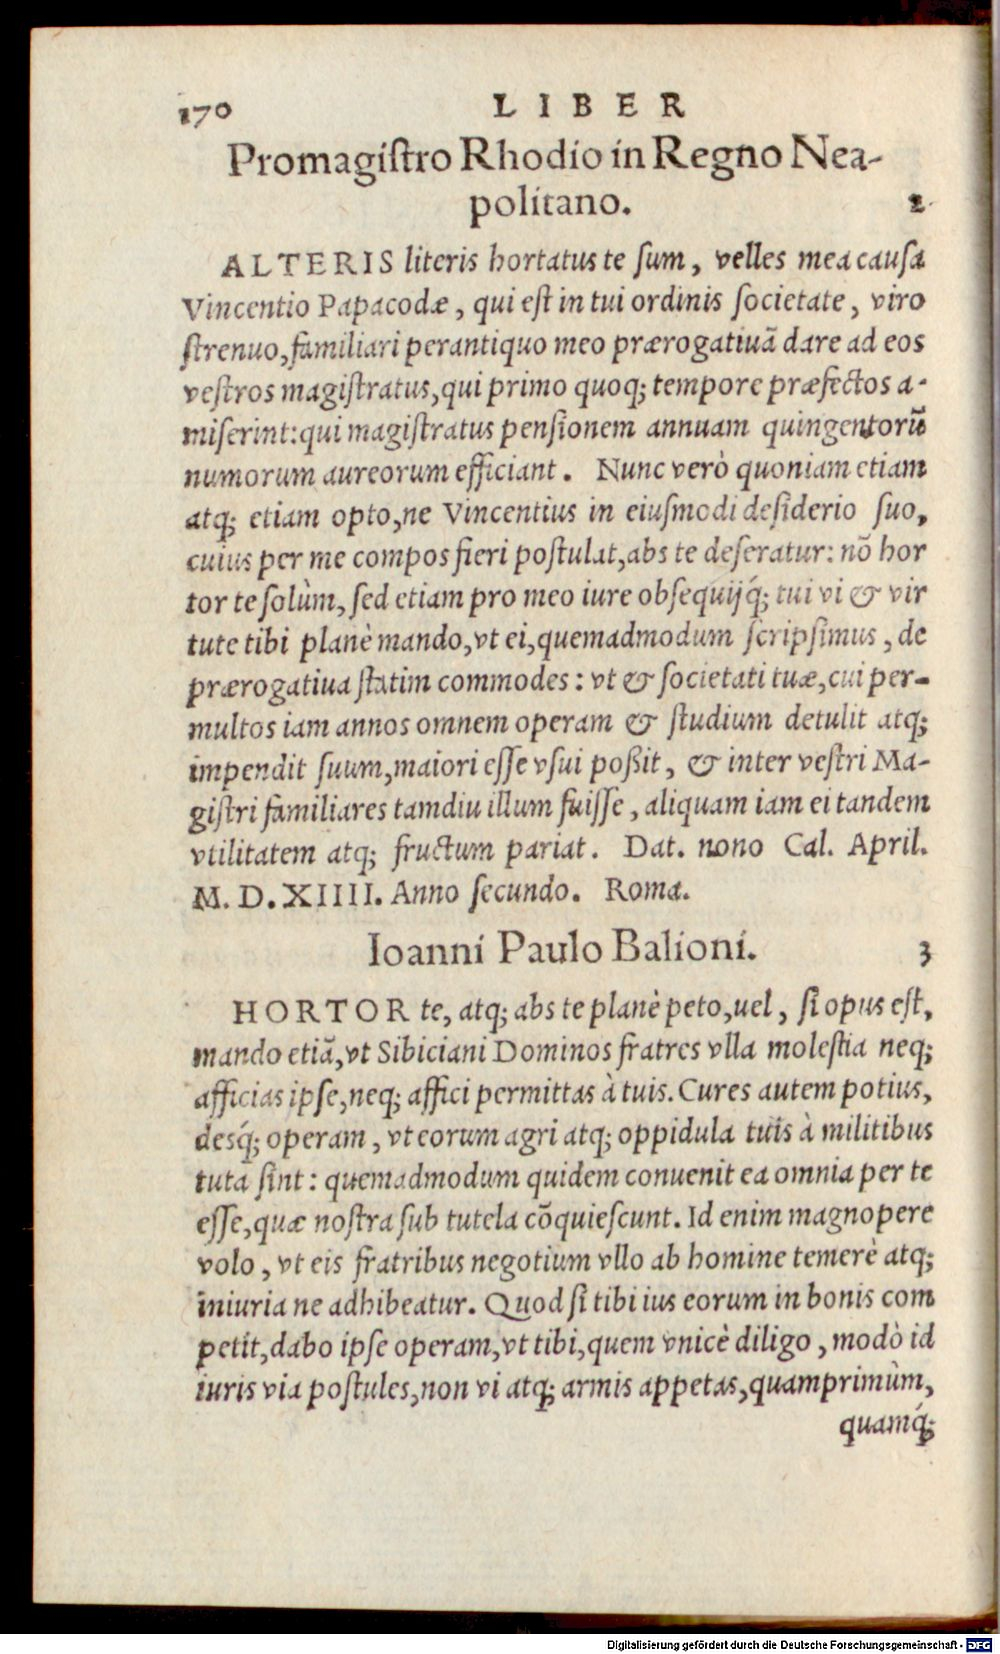 170 LIBER
Promagiſtro Rhodio in Regno Nea-
politano. 2
ALTERIS literis hortatus te ſum, velles mea cauſa
Vincentio Papacodæ, qui eſt in tui ordinis ſocietate, viro
ſtrenuo, familiari perantiquo meo prærogatiuã dare ad eos
veſtros magiſtratus, qui primo quoq; tempore præfectos a-
miſerint: qui magiſtratus penſionem annuam quingentorũ
numorum aureorum efficiant. Nunc verò quoniam etiam
atq; etiam opto, ne Vincentius in eiuſmodi deſiderio ſuo,
cuius per me compos fieri poſtulat, abs te deſeratur: nõ hor
tor te ſolùm, ſed etiam pro meo iure obſequijq́; tui vi & vir
tute tibi planè mando, vt ei, quemadmodum ſcripſimus, de
prærogatiua ſtatim commodes: vt & ſocietati tuæ, cui per-
multos iam annos omnem operam & ſtudium detulit atq;
impendit ſuum, maiori eſſe vſui poßit, & inter veſtri Ma-
giſtri familiares tamdiu illum fuiſſe, aliquam iam ei tandem
vtilitatem atq; fructum pariat. Dat. nono Cal. April.
M. D. XIIII. Anno ſecundo. Roma.
Ioanni Paulo Balioni. 3
HORTOR te, atq; abs te planè peto, uel, ſi opus eſt,
mando etiã, vt Sibiciani Dominos fratres vlla moleſtia neq;
afficias ipſe, neq; affici permittas à tuis. Cures autem potius,
desq́; operam, vt eorum agri atq; oppidula tuis à militibus
tuta ſint: quemadmodum quidem conuenit ea omnia per te
eſſe, quæ noſtra ſub tutela cõquieſcunt. Id enim magnopere
volo, vt eis fratribus negotium vllo ab homine temerè atq;
iniuria ne adhibeatur. Quod ſi tibi ius eorum in bonis com
petit, dabo ipſe operam, vt tibi, quem vnicè diligo, modò id
iuris via poſtules, non vi atq; armis appetas, quamprimùm,
quamq́;
Digitalisierung gefördert durch die Deutsche Forschungsgemeinschaft - DFG